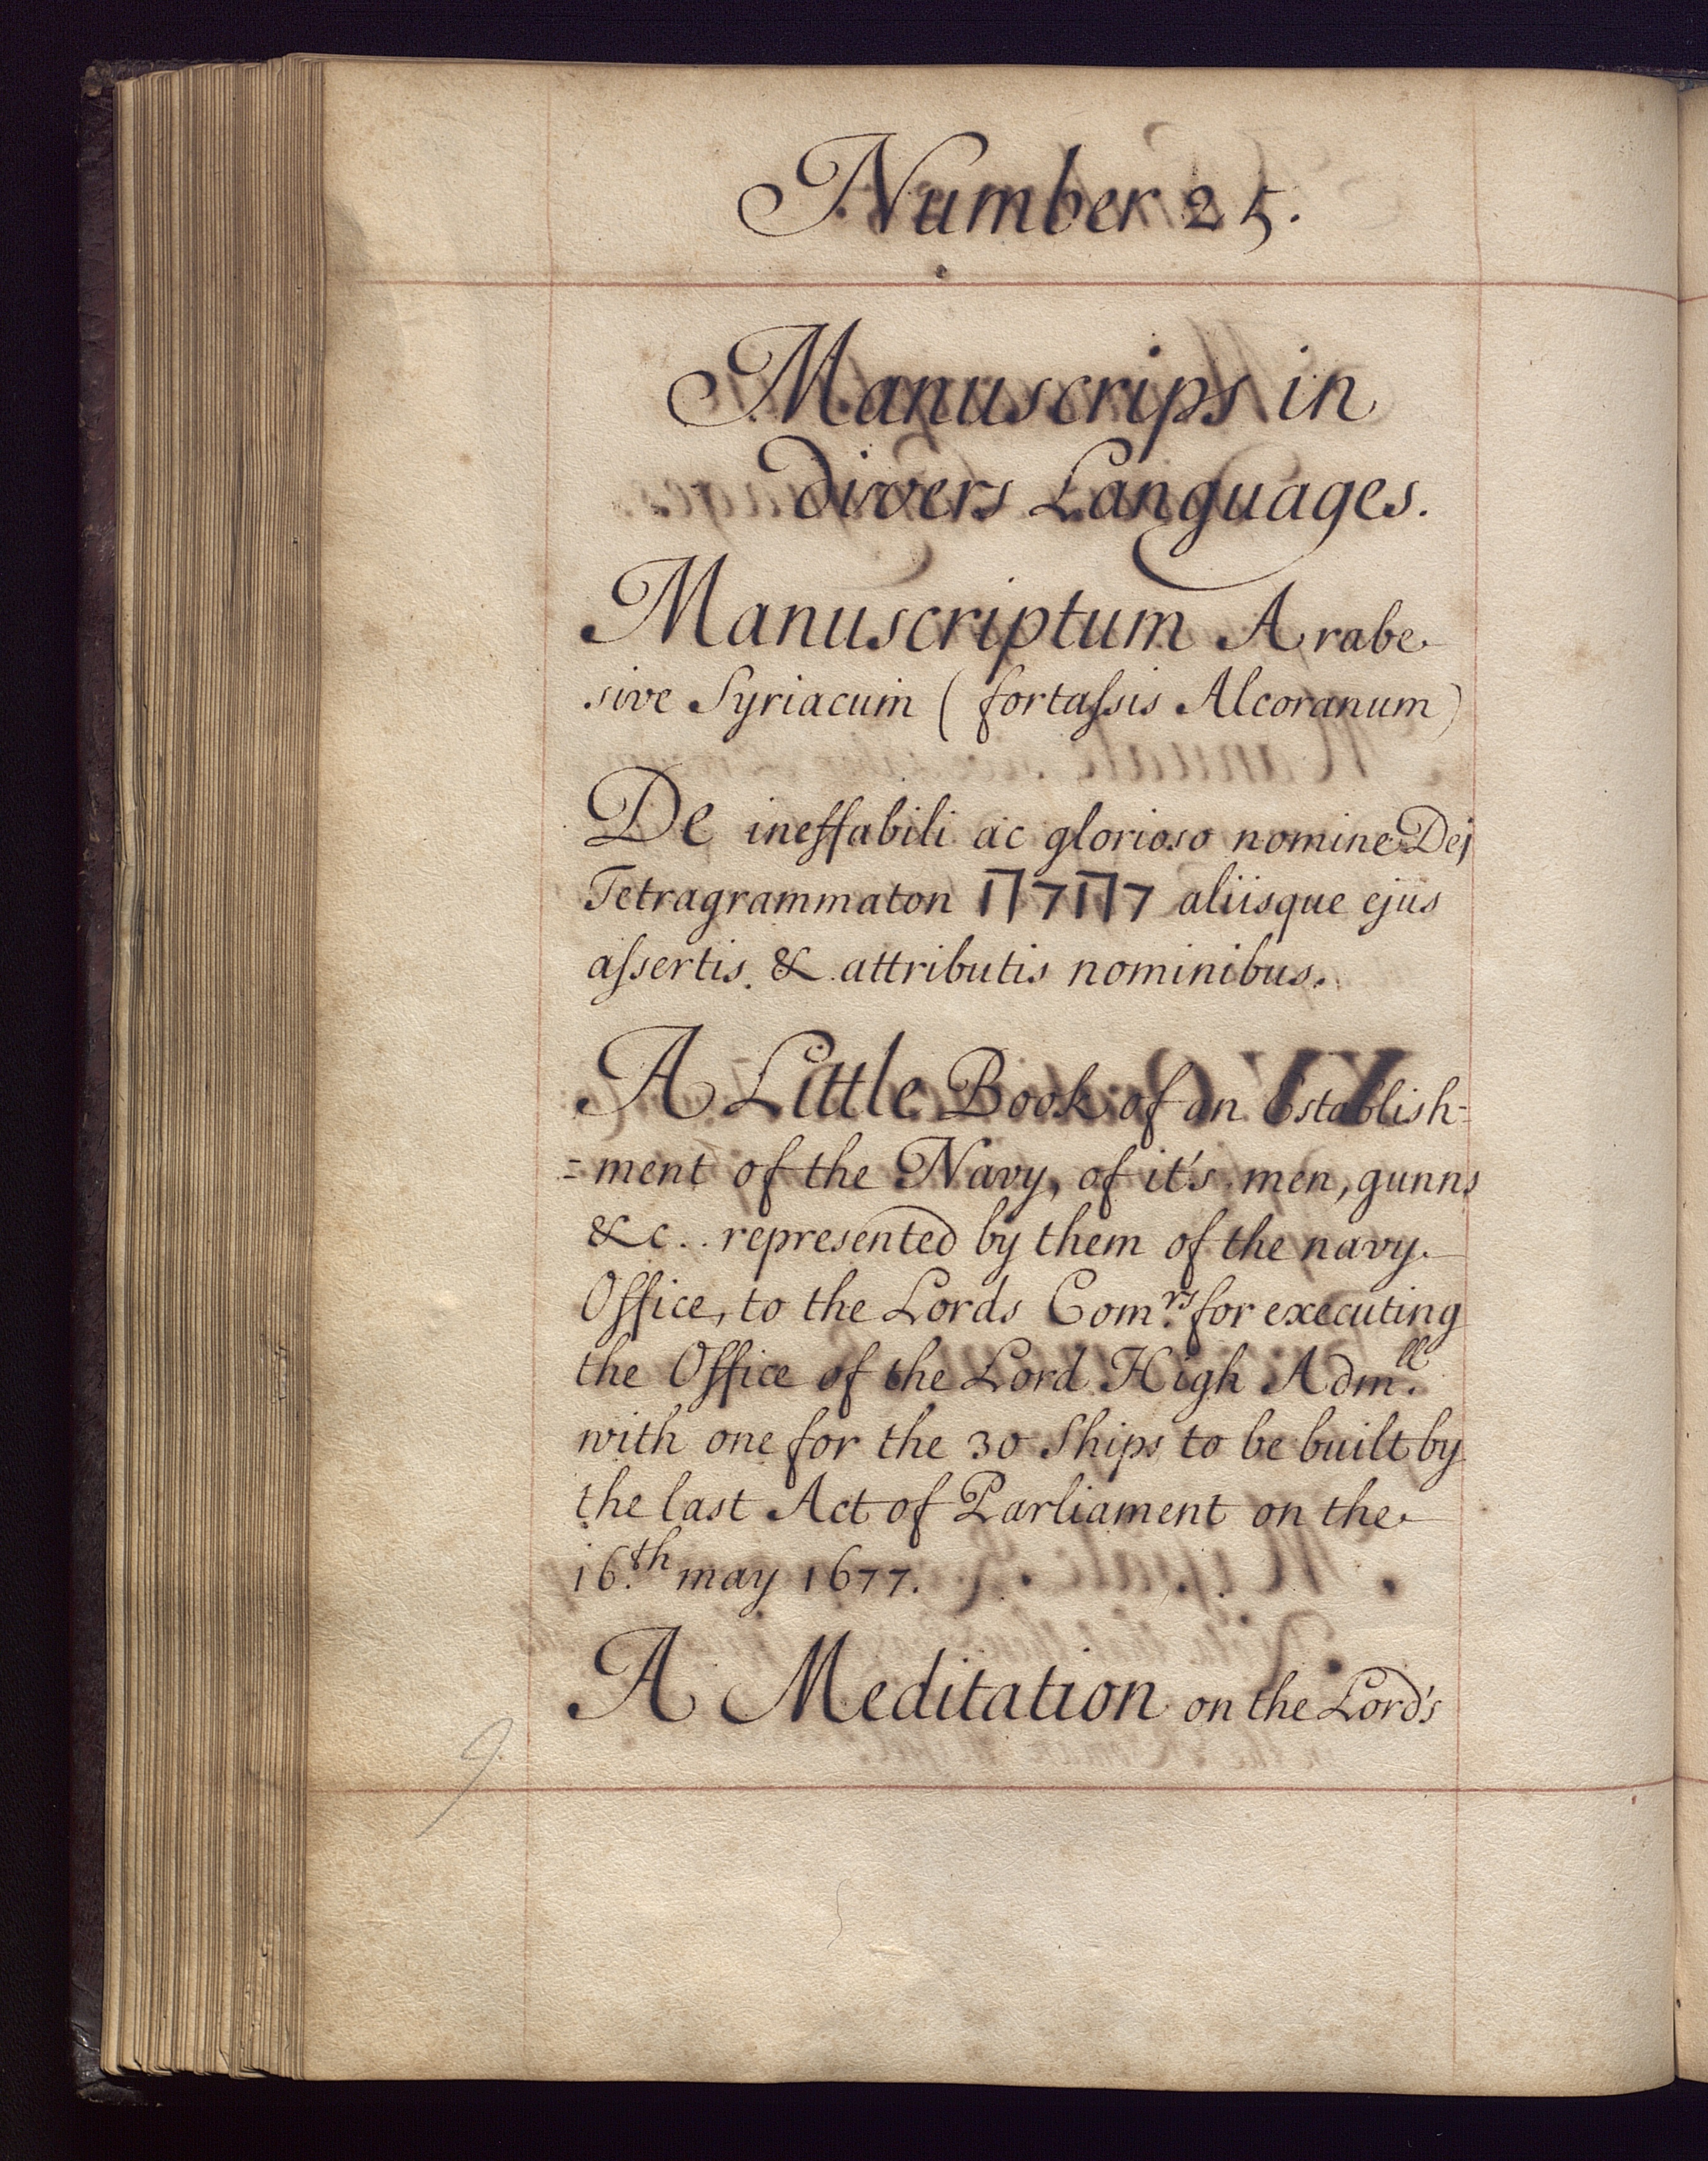 Number 25.
Manuscrips in
divers Languages.
Manuscriptum Arabe
sive Syriacum (fortaſsis Alcoranum)
De ineffabili ac glorioso nomine Dei
Tetragrammaton יהוה aliisque ejus
aſsertis & attributis nominibus.
A Little Book of an Establish-
=ment of the Navy, of it's men, gunns
&c.. represented by them of the navy
Office, to the Lords Com.rs for executing
the Office of the Lord High Adm.ll
with one for the 30 Ships to be built by
the last Act of Parliament on the
16.th may 1677.
A Meditation on the Lord's